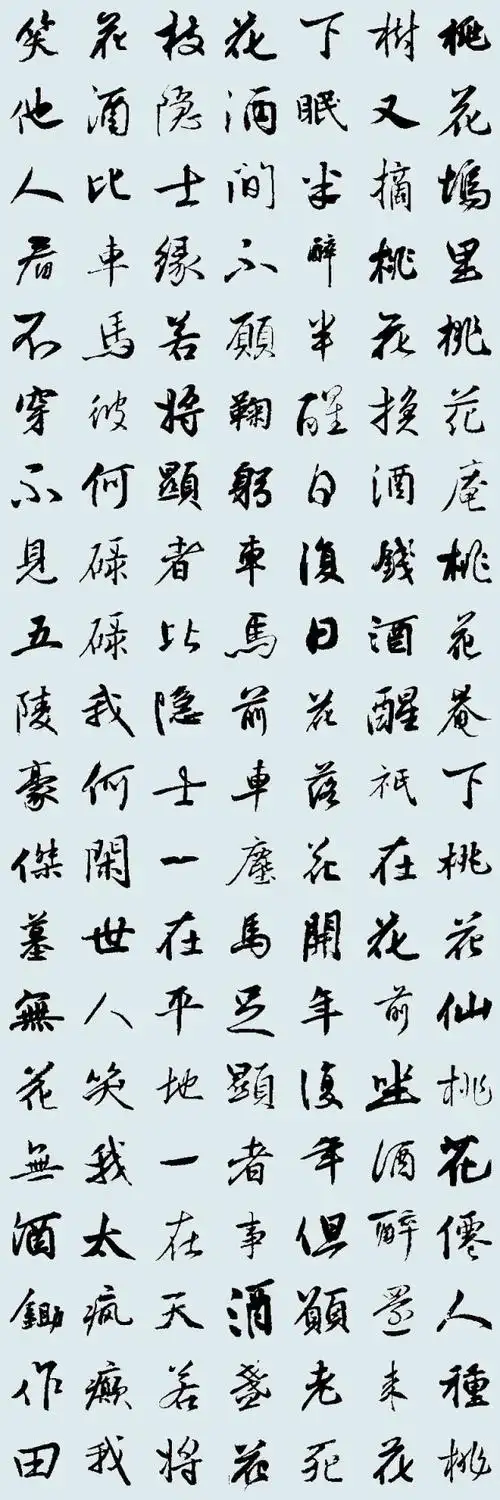 桃花塢里桃花庵桃花菴下桃花仙桃花僊人種桃
樹又摘桃花換酒錢酒醒祇在花前坐酒醉還来花
下眠半醉半醒日復日花落花開年復年但願老死
花酒間不願鞠躬車馬前車塵馬足顯者事酒盞花
枝隐士緣若將顯者比隐士一在平地一在天若將
花酒比車馬彼何碌碌我何閑世人笑我太瘋癲我
笑他人看不穿不見五陵豪傑墓無花無酒鋤作田